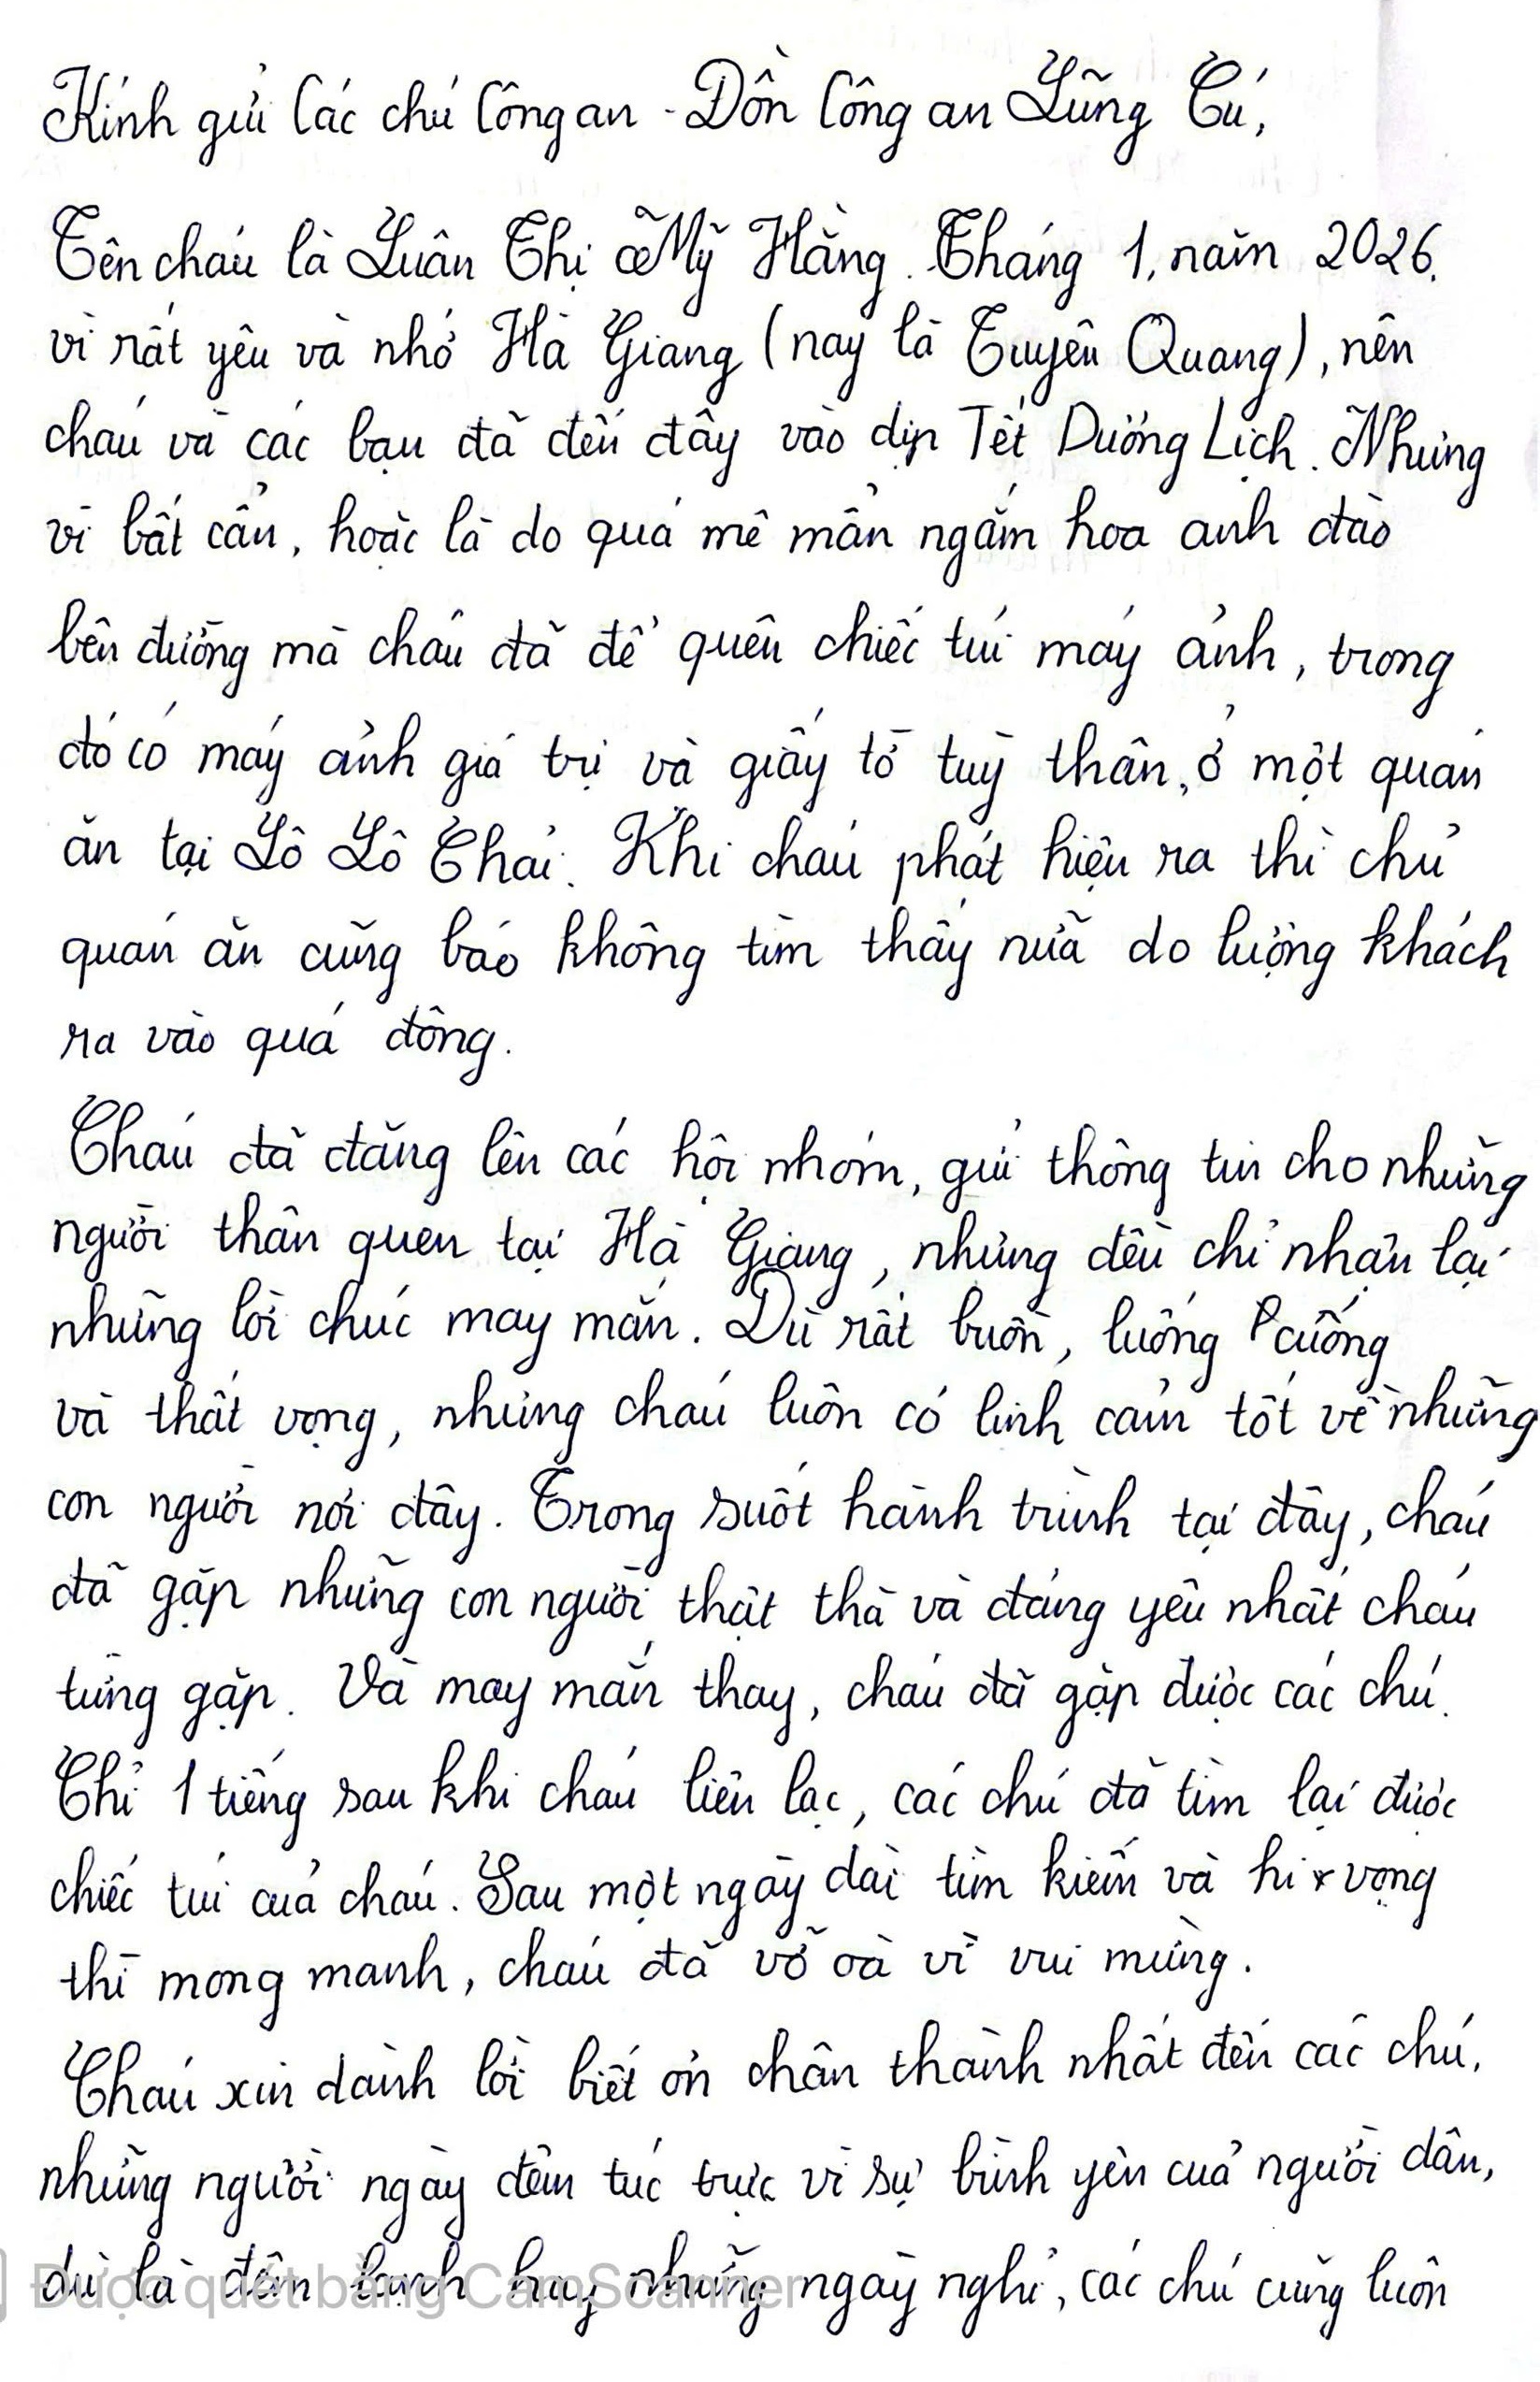 Kính gửi Các chú Công an - Đồn Công an Lũng Cú,
Tên cháu là Luân Thị Mỹ Hằng. Tháng 1, năm 2026.
vì rất yêu và nhớ Hà Giang (nay là Tuyên Quang), nên
cháu và các bạn đã đến đây vào dịp Tết Dương Lịch. Nhưng
vì bất cẩn, hoặc là do quá mê mẩn ngắm hoa anh đào
bên đường mà cháu đã để quên chiếc túi máy ảnh, trong
đó có máy ảnh giá trị và giấy tờ tuỳ thân, ở một quán
ăn tại Lô Lô Chải. Khi cháu phát hiện ra thì chủ
quán ăn cũng báo không tìm thấy nữa do lượng khách
ra vào quá đông.
Cháu đã đăng lên các hội nhóm, gửi thông tin cho những
người thân quen tại Hà Giang, nhưng đều chỉ nhận lại
những lời chúc may mắn. Dù rất buồn, luống cuống
và thất vọng, nhưng cháu luôn có linh cảm tốt về những
con người nơi đây. Trong suốt hành trình tại đây, cháu
đã gặp những con người thật thà và đáng yêu nhất cháu
từng gặp. Và may mắn thay, cháu đã gặp được các chú.
Chỉ 1 tiếng sau khi cháu liên lạc, các chú đã tìm lại được
chiếc túi của cháu. Sau một ngày dài tìm kiếm và hi vọng
thì mong manh, cháu đã vỡ oà vì vui mừng.
Cháu xin dành lời biết ơn chân thành nhất đến các chú,
những người ngày đêm túc trực vì sự bình yên của người dân,
dù là đêm lạnh hay những ngày nghỉ, các chú cũng luôn
Được quét bằng CamScanner